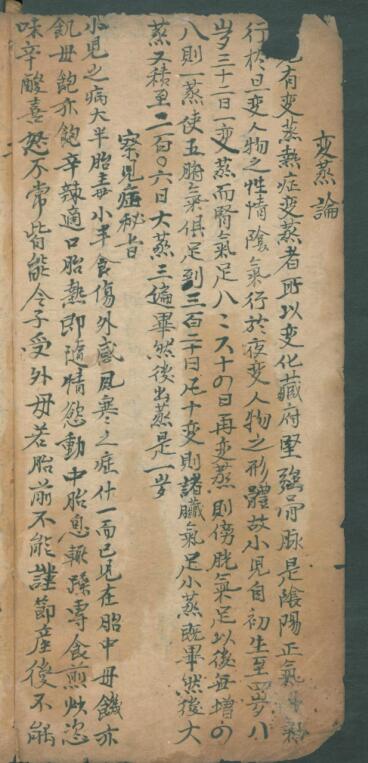 变蒸論
有变蒸熱症变蒸者所以变化藏府堅強骨脉是陰陽正氣
行於旦变人物之性情陰氣行於夜变人物之形體故小児自初生至
三十二日一变蒸而腎氣足八六十四日再变蒸則傍胱氣足以後每增
八則一蒸使五臓氣俱足到三百二十日凡十变則諸臓氣足小蒸既畢然後大
蒸又積至二百〇六日大蒸三遍畢然後出蒸是一岁
察児症秘旨
小児之病大半胎毒小半食傷外感風寒之症什一而已児在胎中毋饑亦
飢毋飽亦飽辛辣適口胎熱即隨情慾動中胎息輙躁專食煎炒恣
味辛酸喜怒不常皆能令子受外毋若胎前不能謹節産後不能